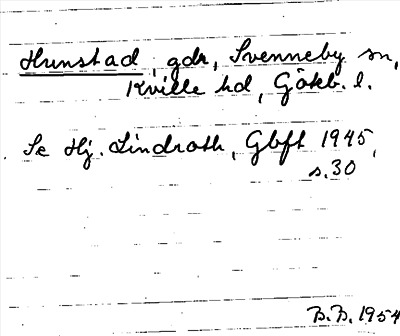 Hunstad, gdr, Svenneby sn,
Kville hd, Göteb. l.
Se Hj. Lindroth, Gbft 1945,
s. 30
B.B. 1954